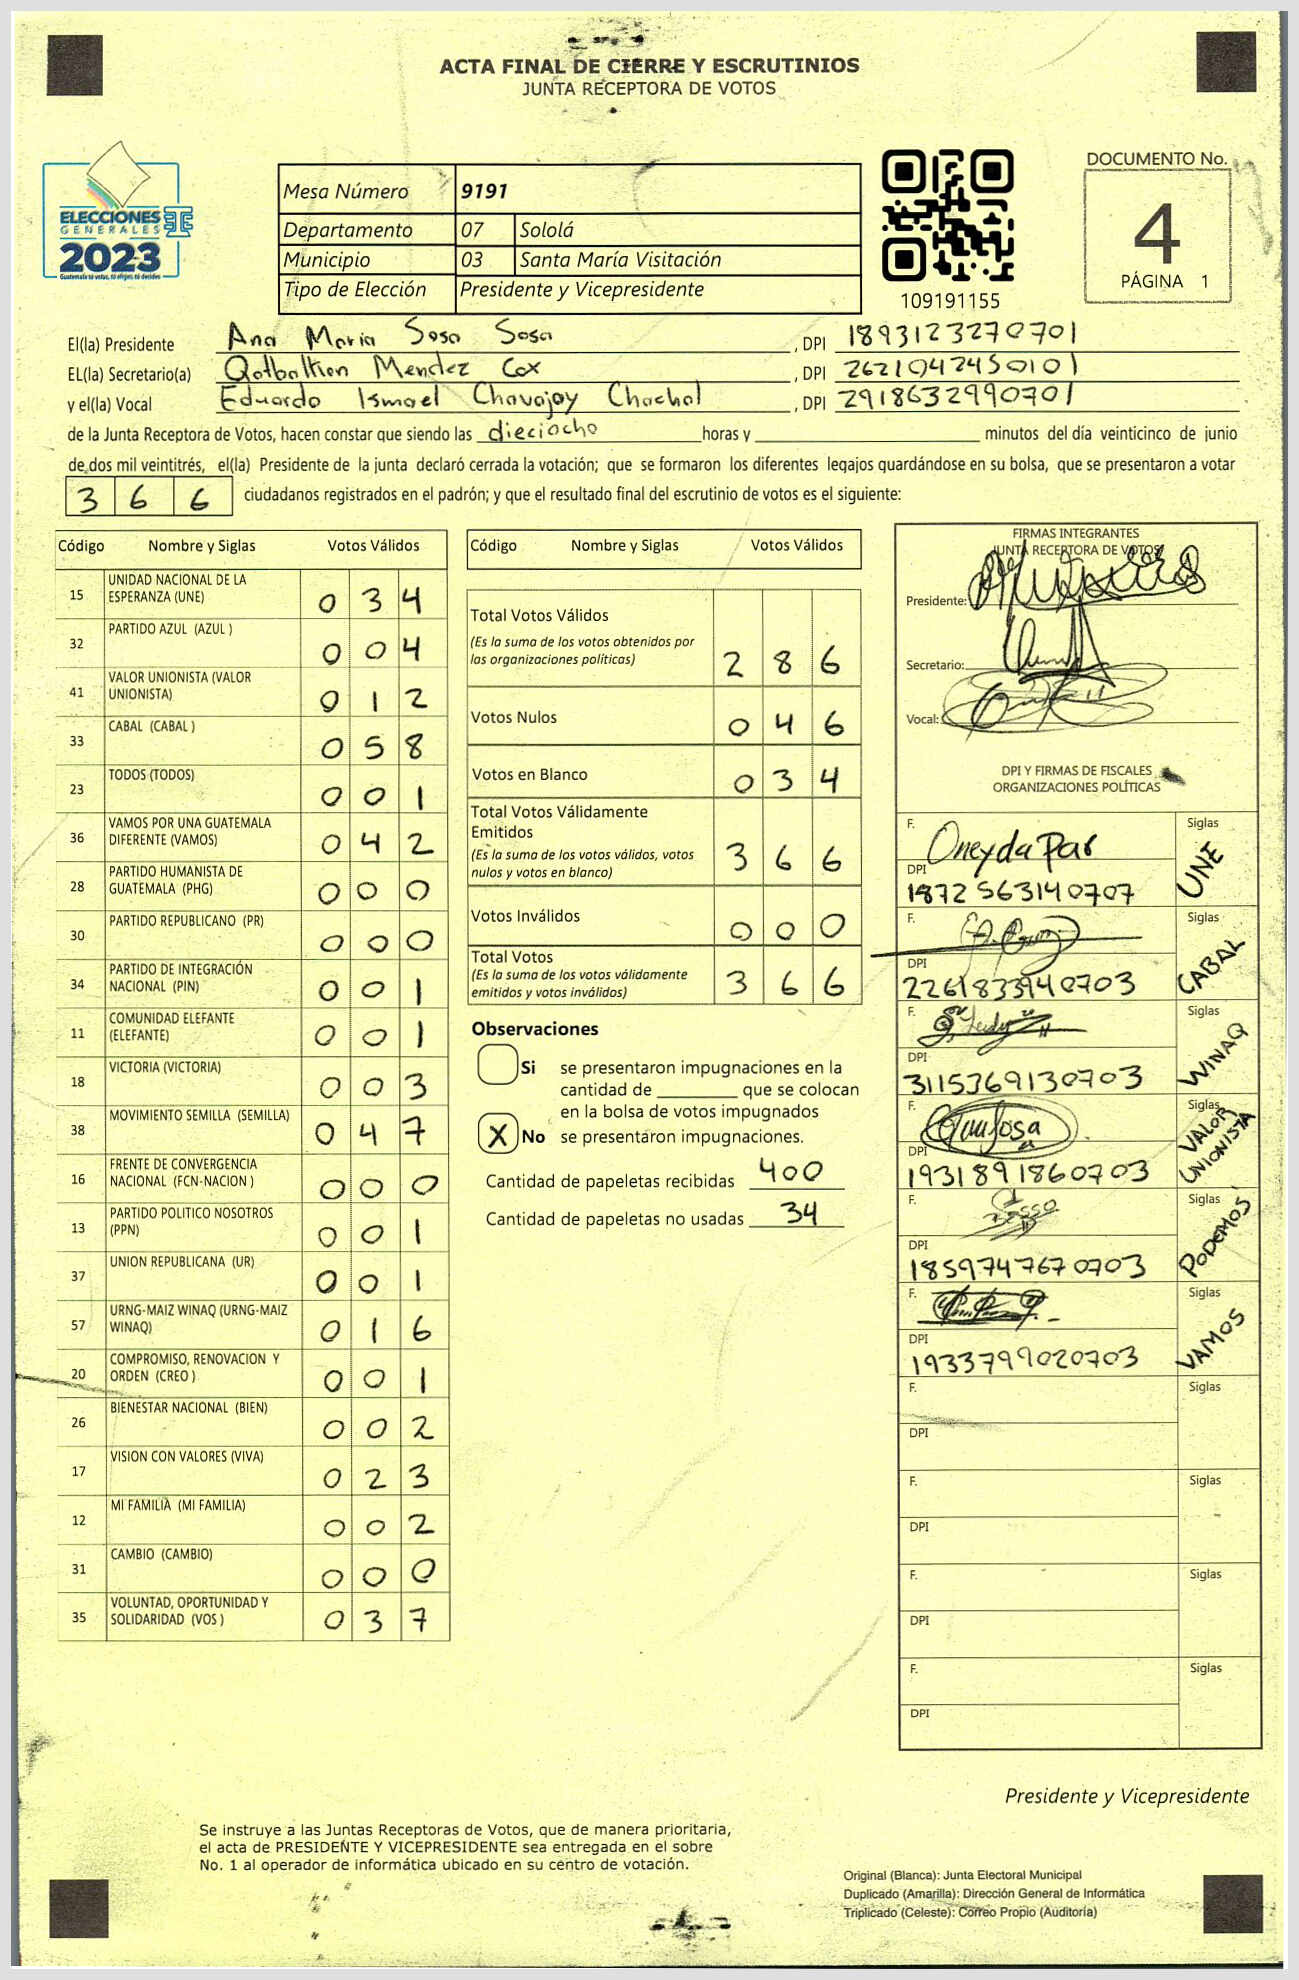 ACTA FINAL DE CIERRE Y ESCRUTINIOS
JUNTA RECEPTORA DE VOTOS
ELECCIONES
GENERALES
2023
Guatemala tú votas, tú eliges, tú decides
Mesa Número 9191
Departamento 07 Sololá
Municipio 03 Santa María Visitación
Tipo de Elección Presidente y Vicepresidente
109191155
DOCUMENTO No.
4
PÁGINA 1
El(la) Presidente Ana Maria Sosa Sosa , DPI 1893123270701
EL(la) Secretario(a) Mendez Cox , DPI 2621042450101
y el(la) Vocal Eduardo Ismael Chavajoy Chachal , DPI 2918632990701
de la Junta Receptora de Votos, hacen constar que siendo las dieciocho horas y minutos del día veinticinco de junio
de dos mil veintitrés, el(la) Presidente de la junta declaró cerrada la votación; que se formaron los diferentes legajos guardándose en su bolsa, que se presentaron a votar
3 6 6 ciudadanos registrados en el padrón; y que el resultado final del escrutinio de votos es el siguiente:
Código Nombre y Siglas Votos Válidos
15 UNIDAD NACIONAL DE LA ESPERANZA (UNE) 0 3 4
32 PARTIDO AZUL (AZUL ) 0 0 4
41 VALOR UNIONISTA (VALOR UNIONISTA) 0 1 2
33 CABAL (CABAL ) 0 5 8
23 TODOS (TODOS) 0 0 1
36 VAMOS POR UNA GUATEMALA DIFERENTE (VAMOS) 0 4 2
28 PARTIDO HUMANISTA DE GUATEMALA (PHG) 0 0 0
30 PARTIDO REPUBLICANO (PR) 0 0 0
34 PARTIDO DE INTEGRACIÓN NACIONAL (PIN) 0 0 1
11 COMUNIDAD ELEFANTE (ELEFANTE) 0 0 1
18 VICTORIA (VICTORIA) 0 0 3
38 MOVIMIENTO SEMILLA (SEMILLA) 0 4 7
16 FRENTE DE CONVERGENCIA NACIONAL (FCN-NACION ) 0 0 0
13 PARTIDO POLITICO NOSOTROS (PPN) 0 0 1
37 UNION REPUBLICANA (UR) 0 0 1
57 URNG-MAIZ WINAQ (URNG-MAIZ WINAQ) 0 1 6
20 COMPROMISO, RENOVACION Y ORDEN (CREO ) 0 0 1
26 BIENESTAR NACIONAL (BIEN) 0 0 2
17 VISION CON VALORES (VIVA) 0 2 3
12 MI FAMILIA (MI FAMILIA) 0 0 2
31 CAMBIO (CAMBIO) 0 0 0
35 VOLUNTAD, OPORTUNIDAD Y SOLIDARIDAD (VOS ) 0 3 7
Código Nombre y Siglas Votos Válidos
Total Votos Válidos
(Es la suma de los votos obtenidos por
las organizaciones políticas) 2 8 6
Votos Nulos 0 4 6
Votos en Blanco 0 3 4
Total Votos Válidamente
Emitidos
(Es la suma de los votos válidos, votos
nulos y votos en blanco) 3 6 6
Votos Inválidos 0 0 0
Total Votos
(Es la suma de los votos válidamente
emitidos y votos inválidos) 3 6 6
Observaciones
Si se presentaron impugnaciones en la
cantidad de que se colocan
en la bolsa de votos impugnados
X No se presentaron impugnaciones.
Cantidad de papeletas recibidas 400
Cantidad de papeletas no usadas 34
FIRMAS INTEGRANTES
JUNTA RECEPTORA DE VOTOS
Presidente:
Secretario:
Vocal:
DPI Y FIRMAS DE FISCALES
ORGANIZACIONES POLÍTICAS
F. Oneyda Par Siglas UNE
DPI 1872 563140707
F. Siglas CABAL
DPI 2261833940703
F. Siglas WINAQ
DPI 3115369130703
F. Siglas VALOR UNIONISTA
DPI 1931891860703
F. Siglas PODEMOS
DPI 1859747670703
F. Siglas VAMOS
DPI 1933799020703
F. Siglas
DPI
F. Siglas
DPI
F. Siglas
DPI
F. Siglas
DPI
Presidente y Vicepresidente
Se instruye a las Juntas Receptoras de Votos, que de manera prioritaria,
el acta de PRESIDENTE Y VICEPRESIDENTE sea entregada en el sobre
No. 1 al operador de informática ubicado en su centro de votación.
Original (Blanca): Junta Electoral Municipal
Duplicado (Amarilla): Dirección General de Informática
Triplicado (Celeste): Correo Propio (Auditoría)